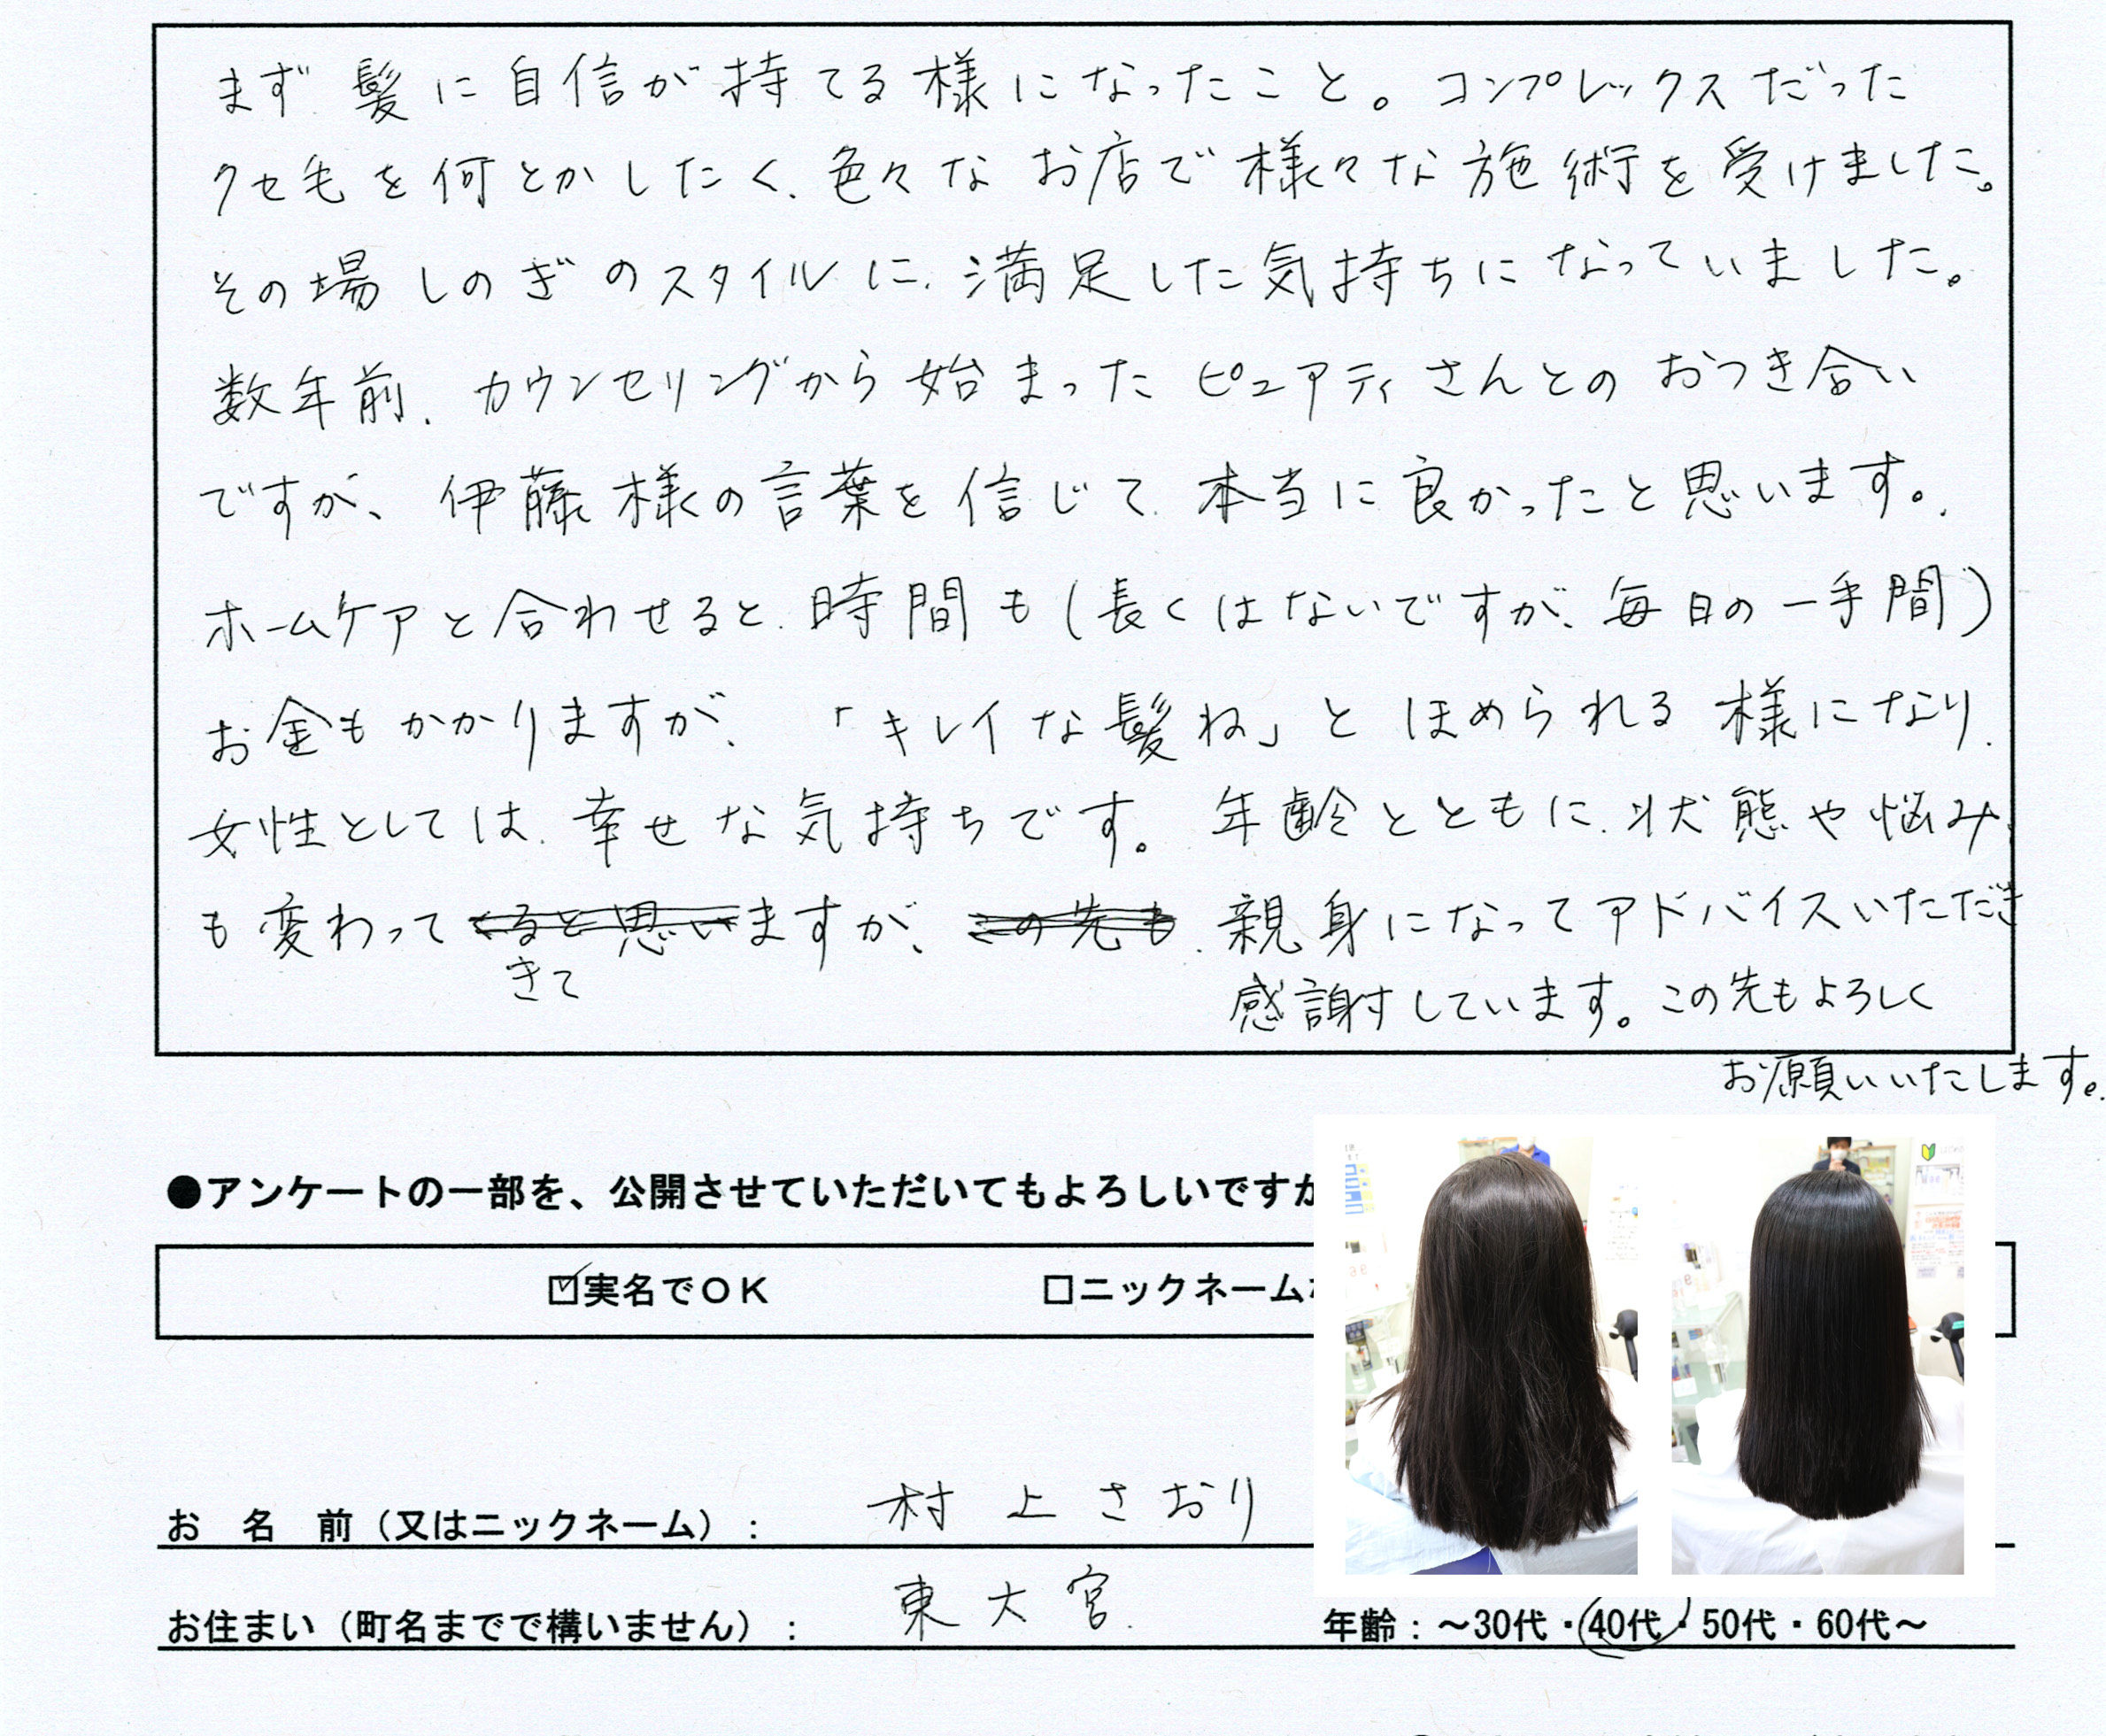 まず髪に自信が持てる様になったこと。コンプレックスだった
クセ毛を何とかしたく、色々なお店で様々な施術を受けました。
その場しのぎのスタイルに、満足した気持ちになっていました。
数年前、カウンセリングから始まったピュアティさんとのおつき合い
ですが、伊藤様の言葉を信じて、本当に良かったと思います。
ホームケアと合わせると、時間も(長くはないですが、毎日の一手間)
お金もかかりますが、「キレイな髪ね」とほめられる様になり、
女性としては、幸せな気持ちです。年齢とともに、状態や悩み
も変わってきてますが、親身になってアドバイスいただき
感謝しています。この先もよろしく
お願いいたします。
●アンケートの一部を、公開させていただいてもよろしいですか
☑実名でOK □ニックネーム
お 名 前(又はニックネーム): 村上さおり
お住まい(町名までで構いません): 東大宮 年齢:～30代・40代・50代・60代～